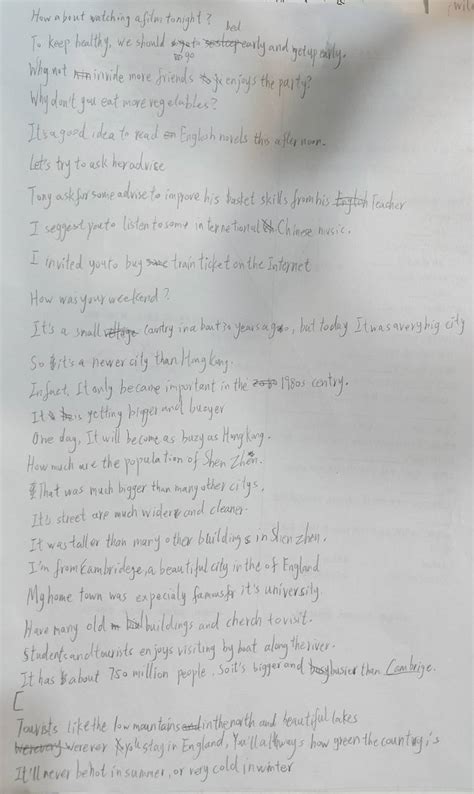 How about watching a film tonight?
bed
To keep healthy, we should go to early and getup early.
go
Why not invide more friends to enjoys the party?
Why don't you eat more vegetables?
It's a good idea to read English novels this afternoon.
Let's try to ask her advise
Tony ask for some advise to improve his basket skills from his Teacher
I seggest you to listen to some international Chinese music.
I invited you to buy some train ticket on the Internet
How was your weekend?
It's a small country in about 30 years ago, but today It was a very big city
So it's a newer city than Hong Kong.
Infact, It only became important in the 1980s centry.
It is getting bigger and buzyer
One day, It will become as buzy as Hong Kong.
How much are the population of Shen Zhen.
That was much bigger than many other citys.
It's street are much wider and cleaner.
It was taller than many other buildings in Shen zhen.
I'm from Cambridege, a beautiful city in the of England
My home town was expecialy famous for it's university.
Have many old buildings and cherch to visit.
Students and tourists enjoys visiting by boat along the river.
It has about 750 million people, So it's bigger and busier than Cambrige.
[
Tourists like the low mountains in the north and beautiful lakes
werever you stay in England, You'll allways how green the country is
It'll never be hot in summer, or very cold in winter